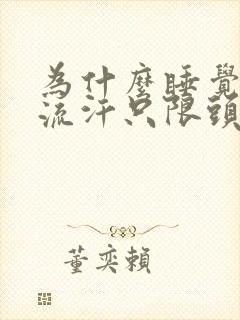 為什麼睡覺
流汗只限頭
董奕賴